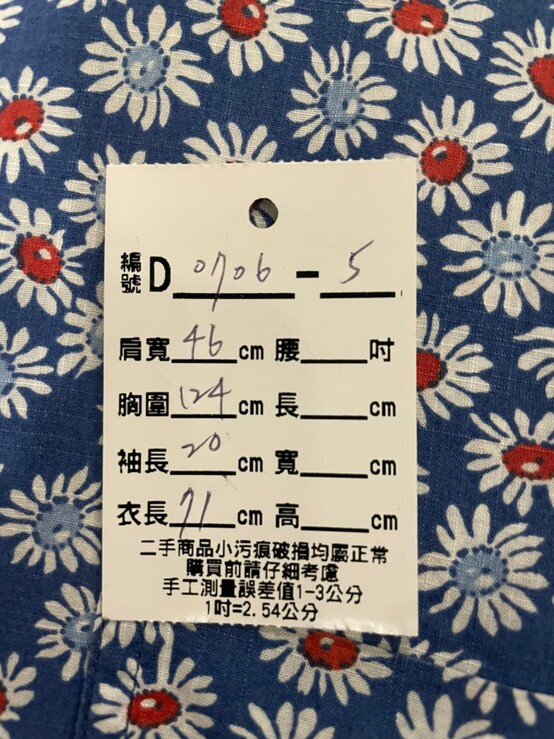 編號D 0706 - 5
肩寬 46 cm 腰____吋
胸圍 124 cm 長____cm
袖長 20 cm 寬____cm
衣長 71 cm 高____cm
二手商品小污痕破損均屬正常
購買前請仔細考慮
手工測量誤差值1-3公分
1吋=2.54公分